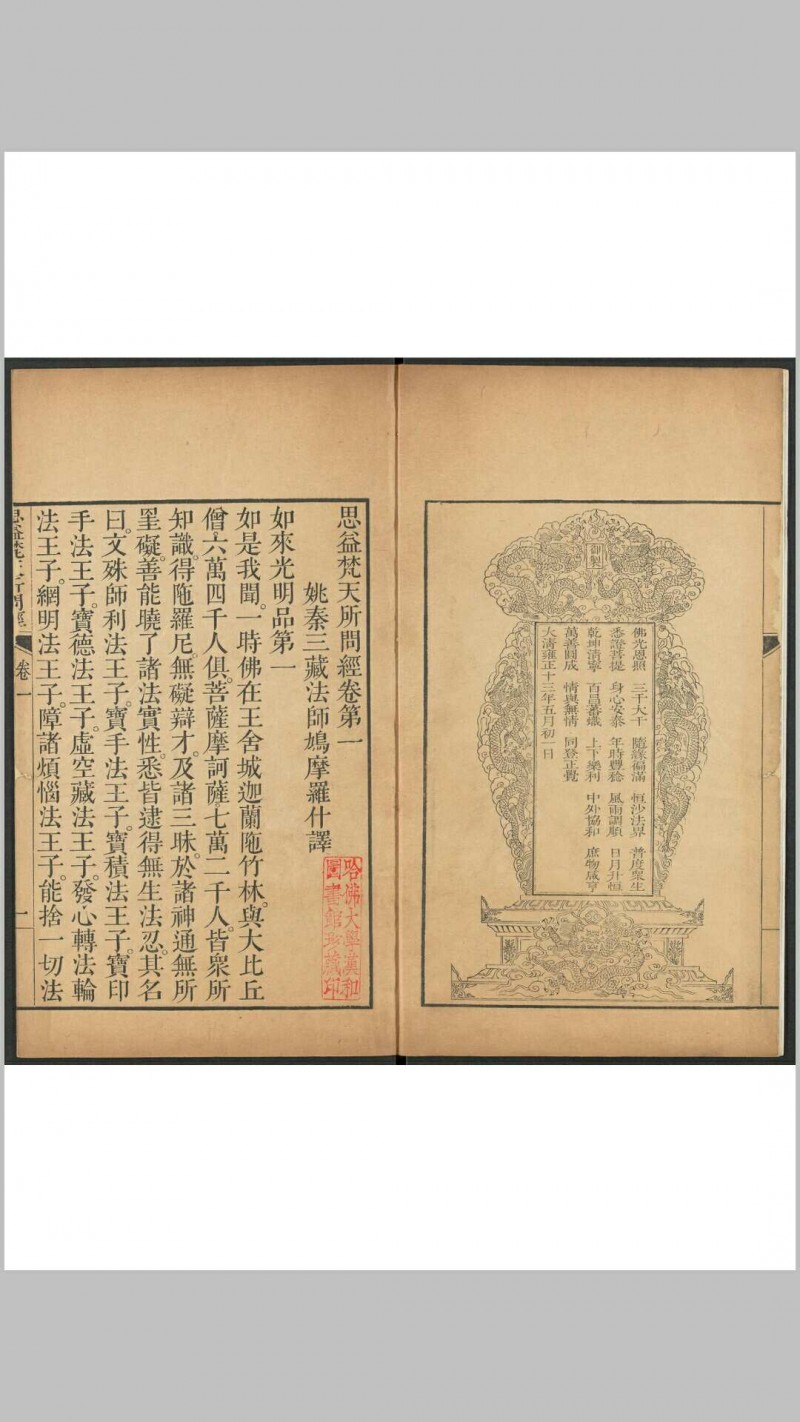 御製
佛光恩照 三千大千 隨緣徧滿 恒沙法界 普度衆生
悉證菩提 身心安泰 年時豐稔 風雨調順 日月升恒
乾坤清寧 百昌蕃熾 上下樂利 中外協和 庶物咸亨
萬善圓成 情與無情 同登正覺
大清雍正十三年五月初一日
思益梵天所問經卷第一
姚秦三藏法師鳩摩羅什譯
如來光明品第一
如是我聞。一時佛在王舍城迦蘭陁竹林。與大比丘
僧六萬四千人俱。菩薩摩訶薩七萬二千人。皆衆所
知識。得陁羅尼。無礙辯才。及諸三昧。於諸神通無所
罣礙。善能曉了諸法實性。悉皆逮得無生法忍。其名
曰。文殊師利法王子。寶手法王子。寶積法王子。寶印
手法王子。寶德法王子。虛空藏法王子。發心轉法輪
法王子。網明法王子。障諸煩惱法王子。能捨一切法
思益梵天所問經 卷一 一
哈佛大學漢和
圖書館珍藏印